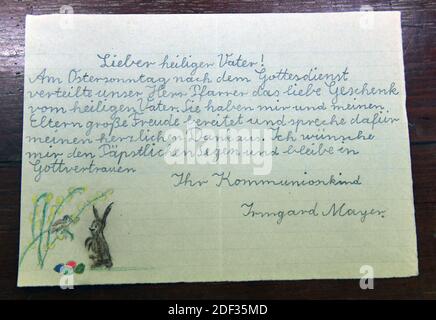 Lieber heiliger Vater!
Am Ostersonntag nach dem Gottesdienst
verteilte unser Herr Pfarrer das liebe Geschenk
vom heiligen Vater. Sie haben mir und meinen
Eltern große Freude bereitet und spreche dafür
meinen herzlich Dank aus. Ich wünsche
mir den Päpstlichen Segen und bleibe in
Gottvertrauen
Ihr Kommunionkind
Irmgard Mayer.
alamy
Image ID: 2DF35MD
www.alamy.com